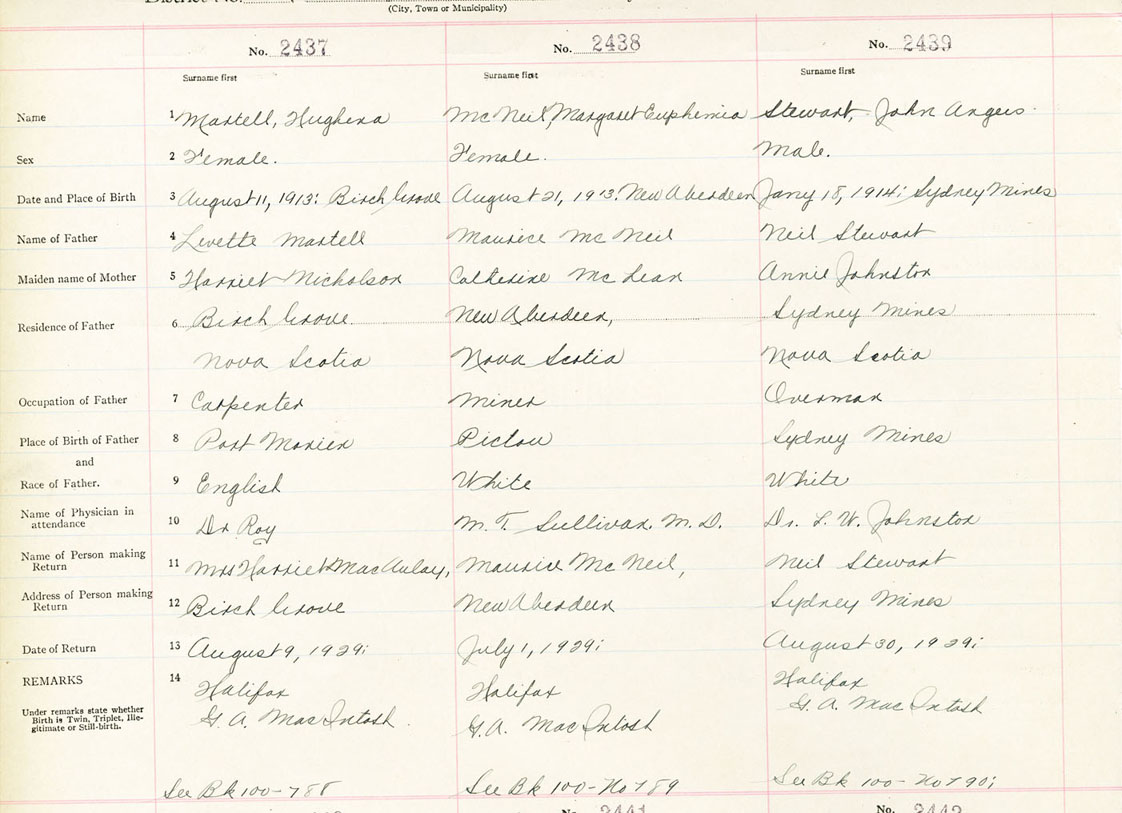 District No.
(City, Town or Municipality)
No. 2437 No. 2438 No. 2439
Surname first Surname first Surname first
Name 1 Martell, Hughena McNeil, Margaret Euphemia Stewart, John Angus
Sex 2 Female. Female. Male.
Date and Place of Birth 3 August 11, 1913: Birch Grove August 21, 1913: New Aberdeen Jany 18, 1914: Sydney Mines
Name of Father 4 Levette Martell Maurice McNeil Neil Stewart
Maiden name of Mother 5 Harriet Nicholson Catherine McLean Annie Johnston
Residence of Father 6 Birch Grove New Aberdeen, Sydney Mines
Nova Scotia Nova Scotia Nova Scotia
Occupation of Father 7 Carpenter Miner Overman
Place of Birth of Father 8 Port Morien Pictou Sydney Mines
and
Race of Father. 9 English White White
Name of Physician in
attendance 10 Dr Roy M. T. Sullivan. M. D. Dr. L. W. Johnston
Name of Person making
Return 11 Mrs Harriet MacAulay, Maurice McNeil, Neil Stewart
Address of Person making
Return 12 Birch Grove New Aberdeen Sydney Mines
Date of Return 13 August 9, 1929: July 1, 1929: August 30, 1929:
REMARKS 14 Halifax Halifax Halifax
Under remarks state whether
Birth is Twin, Triplet, Ille-
gitimate or Still-birth.
G. A. MacIntosh. G. A. MacIntosh G. A. MacIntosh
See Bk 100-788 See Bk 100-No 789 See Bk 100-No 790;
No. 2441 No. 2442